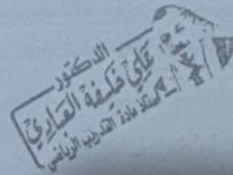 الدكتور
علي خليفة العبادي
أستاذ مادة التدريب الرياضي